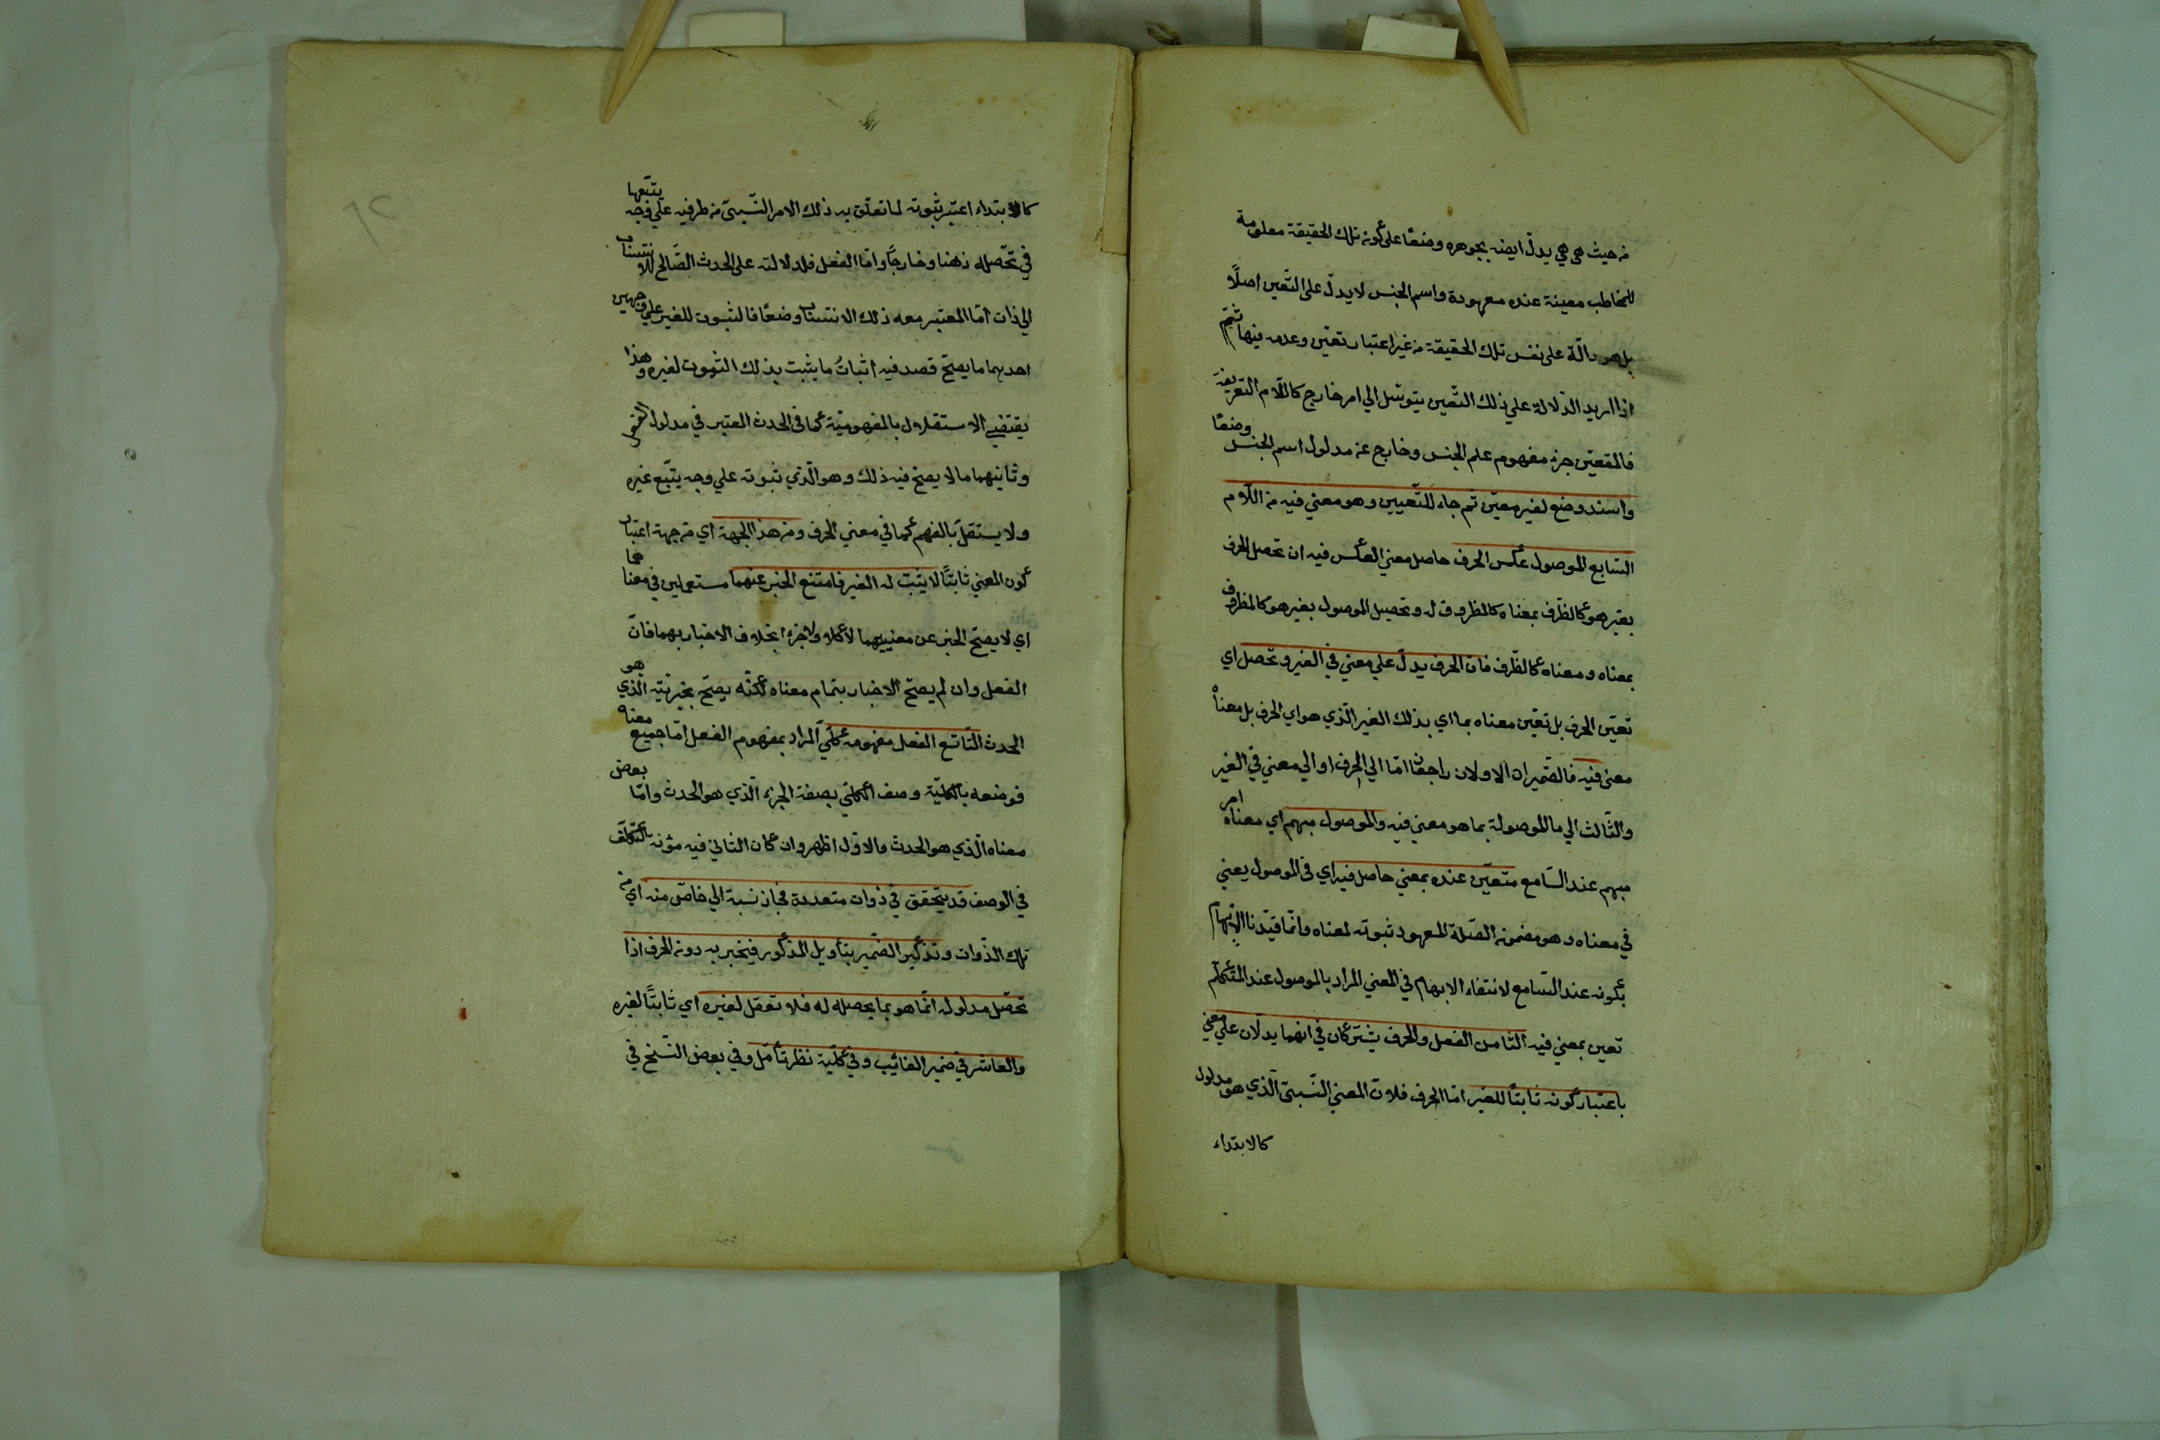 من حيث هى هي يدلّ ايضه بجوهره وضعًا على كونه تلك الحقيقة معلومة
للمخاطب معينة عنده معهودة واسم الجنس لا يدلّ على التّعين اصلًا
بل هو دالّة على نفس تلك الحقيقة من غير اعتبار تعيّن وعدمه فيها ثمّ
اذا اريد الدّلالة علي ذلك التّعين يتوسّل الي امر خارج كاللّام التعريفية
فالمتعيّن جزء مفهوم علم الجنس وخارج عن مدلول اسم الجنس وضعًا
واسند وضع لغير معيّن ثم جاء للتّعيين وهو معني فيه من اللّام
السّابع الموصول عكس الحرف حاصل معني العكس فيه ان تحصل الحرف
بغير هو كالظّرف بمعناه كالمظروف له وتحصيل الموصول بغير هو كالمظروف
بمعناه ومعناه كالظّرف فان الحرف يدلّ علي معني في الغير وتحصل اي
تعيّن الحرف بل تعيّن معناه بما اي بذلك الغير الّذي هو اي الحرف بل معناه
معنى فيه فالضّميران الاولان راجعان امّا الي الحرف او الي معني في الغير
والثّالث الي ما الموصولة بما هو معني فيه والموصول مبهم اي معناه امر
مبهم عند السّامع متعيّن عنده بمعني حاصل فيه اي في الموصول يعني
في معناه وهو مضمونه الصّلة المعهود ثبوته لمعناه وانّما قيّدنا الابهام
بكونه عند السّامع لانتفاء الابهام في المعني المراد بالموصول عند المتكلّم
تعين بمعني فيه الثامن الفعل والحرف يشتركان في انهما يدلّان علي معني
باعتبار كونه ثابتًا للغير امّا الحرف فلانّ المعني النّسبىّ الّذي هو مدلول
كالابتداء
كالابتداء اعتبر ثبوته لما تعلّق به ذلك الامر النّسبىّ من طرفيه علي وجه يتبعها
في تحصّله ذهنا وخارجًا وامّا الفعل فلدلالته على الحدث الصّالح للانتساب
الي ذات امّا المعتبر معه ذلك الانتساب وضعًا فالثبوت للغير علي وجهين
احديهما ما يصحّ قصد فيه اثباتُ ما يثبت بذلك الثبوت لغيره وهذا
يقتضي الاستقلال بالمفهوميّة كما فى الحدث المعتبر في مدلول الفعل
وثانيهما ما لا يصحّ فيه ذلك وهو الّذي ثبوته علي وجه يتبّع غيره
ولا يستقلّ بالفهم كما في معني الحرف ومن هذا الجهة اي من جهة اعتبار
كون المعني ثابتًا لا يثبت له الغير فامتنع الخبر عنهما مستعملين في معناهما
اي لا يصحّ الخبر عن معنييهما لا كلا ولا جزءا بخلاف الاخبار بهما فانّ
الفعل وان لم يصحّ الاخبار بتمام معناه لكنّه يصحّ بجزئيّة الّذي هو
الحدث التّاسع الفعل مفهومه كلّيّ المراد بمفهوم الفعل امّا جميع معناه
فوضعه بالكليّة وصف الكلّي بصفة الجزء الّذي هو الحدث وامّا بعض
معناه الّذي هو الحدث والاوّل اظهر وان كان الثاني فيه مؤنة بالتّكلّف
في الوصف قد يتحقّق في ذوات متعددة فجاز نسبة الي خاصّ منه اي من
تلك الذّوات وتذكير الضّمير بتأويل المذكور فيخبر به دونه الحرف اذا
تحصّل مدلوله انّما هو بما يحصله له فلا تعقل لغيره اي ثابتًا لغيره
والعاشر في ضمير الغائيب وفي كلّية نظر تأمّل وفي بعض النّسخ في